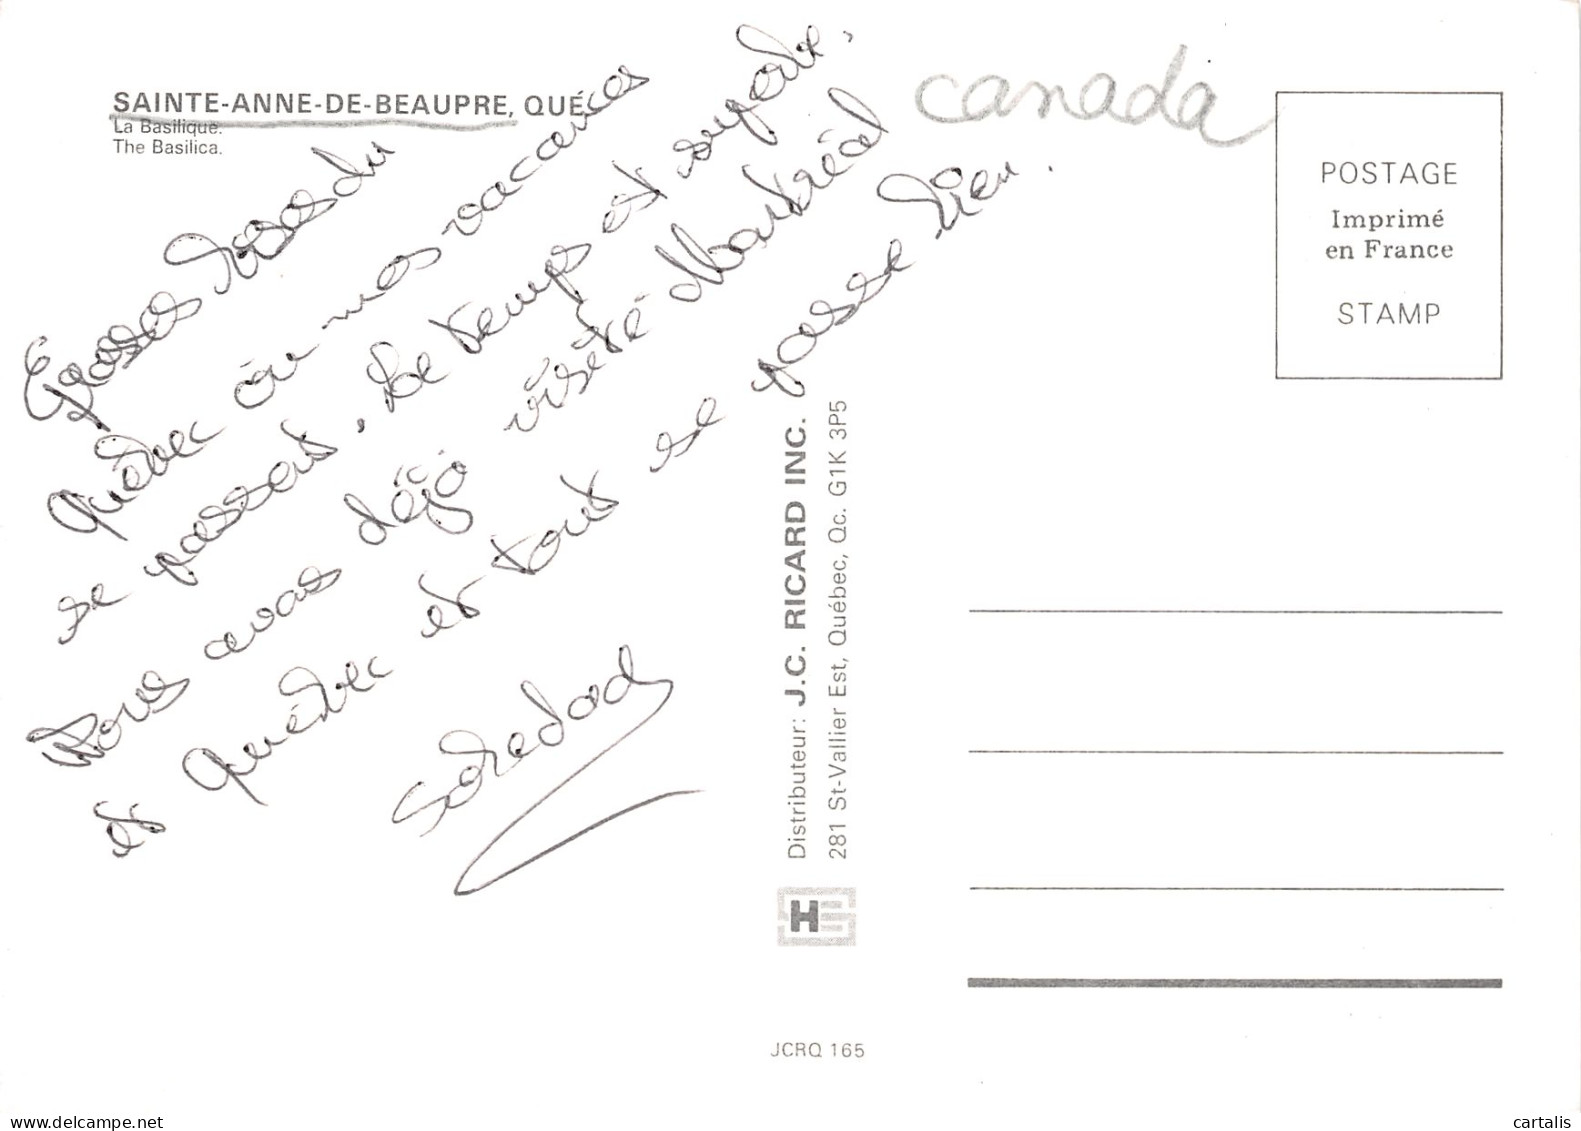 SAINTE-ANNE-DE-BEAUPRE, QUÉ.
La Basilique.
The Basilica.
canada
Grosses bises du
Québec où mes vacances
se passent. Le temps est superbe.
Nous avons déjà visité Montréal
et Québec et tout se passe bien.
POSTAGE
Imprimé
en France
STAMP
Distributeur: J.C. RICARD INC.
281 St-Vallier Est, Québec, Qc. G1K 3P5
H
JCRQ 165
delcampe.net
cartalis